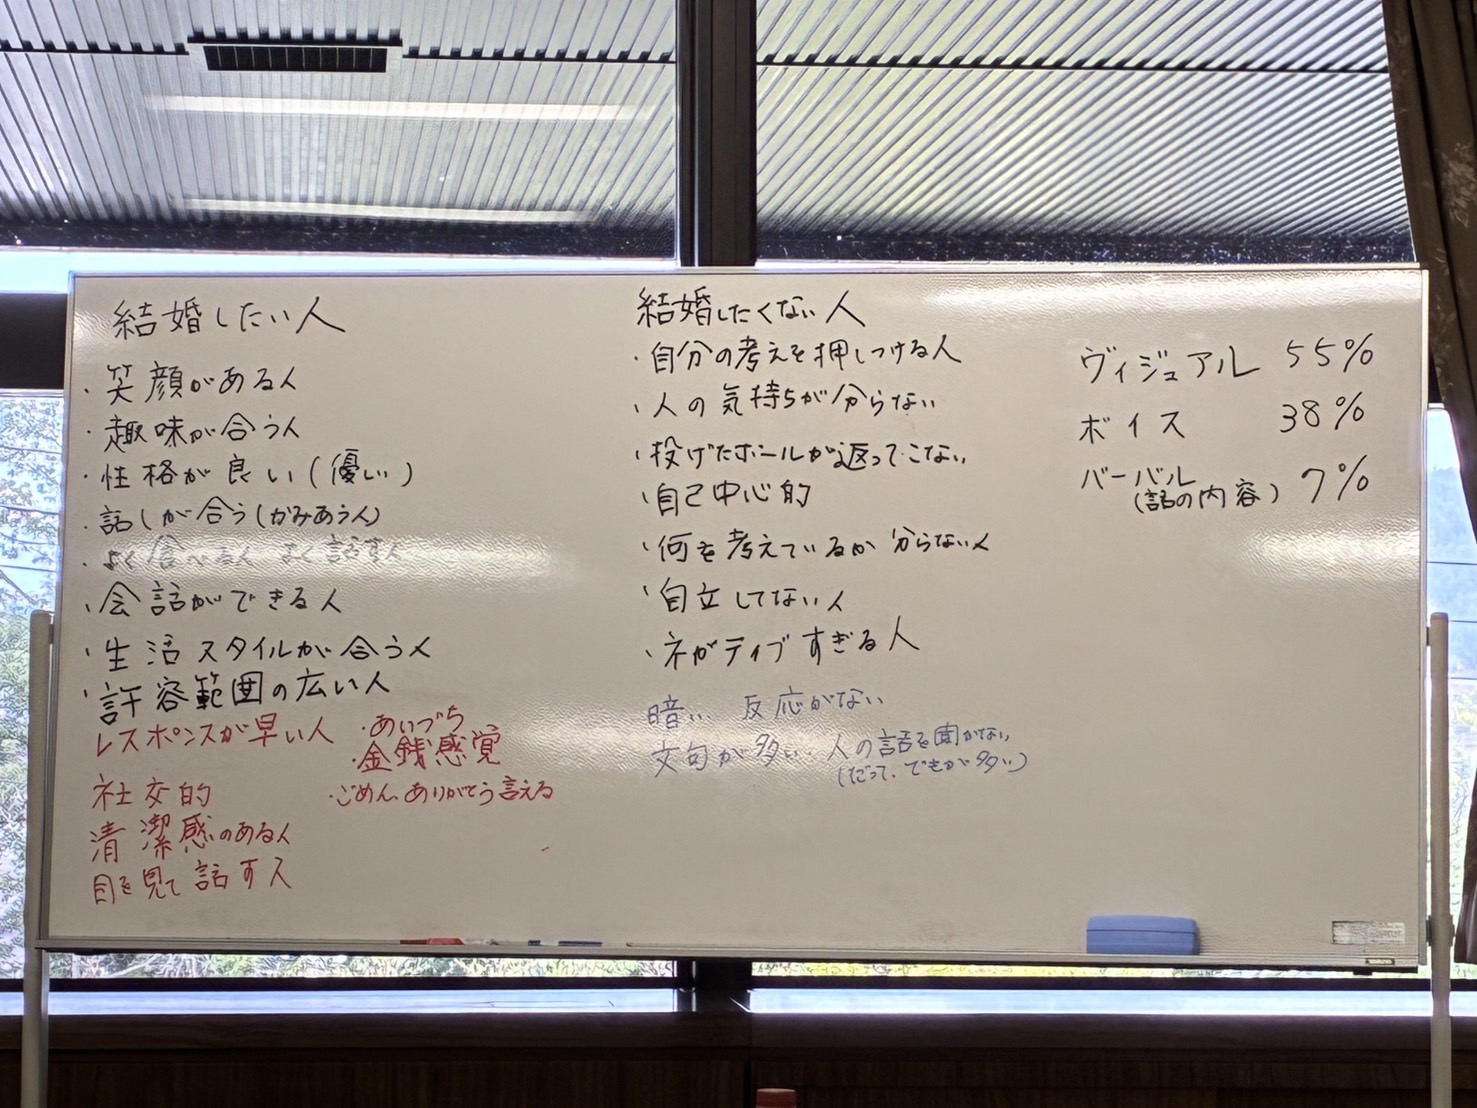 結婚したい人
・笑顔がある人
・趣味が合う人
・性格が良い(優しい)
・話しが合う(かみあう人)
・よく食べる人 よく話す人
・会話ができる人
・生活スタイルが合う人
・許容範囲の広い人
レスポンスが早い人
社交的
清潔感のある人
目を見て話す人
・あいづち
・金銭感覚
・ごめん、ありがとう言える
結婚したくない人
・自分の考えを押しつける人
・人の気持ちが分らない
・投げたボールが返ってこない
・自己中心的
・何を考えているか分らない人
・自立してない人
・ネガティブすぎる人
暗い 反応がない
文句が多い 人の話を聞かない
(だって、でもが多い)
ヴィジュアル 55%
ボイス 38%
バーバル 7%
(話の内容)